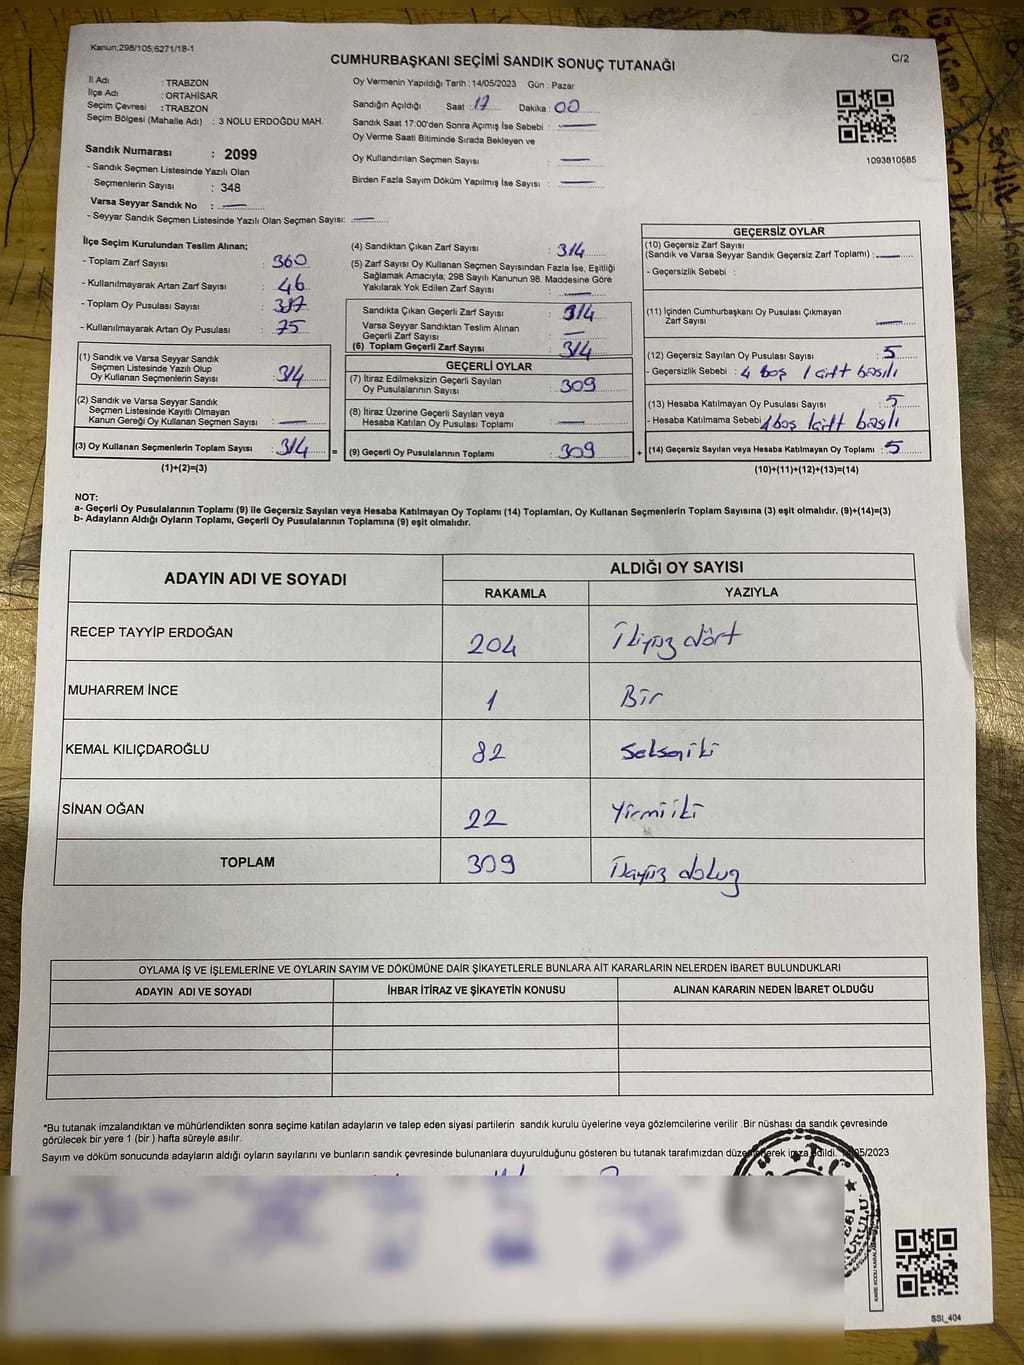 Kanun,298/105,6271/18-1
CUMHURBAŞKANI SEÇİMİ SANDIK SONUÇ TUTANAĞI
C/2
İl Adı : TRABZON
İlçe Adı : ORTAHİSAR
Seçim Çevresi : TRABZON
Seçim Bölgesi (Mahalle Adı) : 3 NOLU ERDOĞDU MAH.
Sandık Numarası : 2099
- Sandık Seçmen Listesinde Yazılı Olan
Seçmenlerin Sayısı : 348
Varsa Seyyar Sandık No : —
- Seyyar Sandık Seçmen Listesinde Yazılı Olan Seçmen Sayısı: —
Oy Vermenin Yapıldığı Tarih : 14/05/2023 Gün : Pazar
Sandığın Açıldığı Saat : 17 Dakika : 00
Sandık Saat 17:00'den Sonra Açımış İse Sebebi : —
Oy Verme Saati Bitiminde Sırada Bekleyen ve
Oy Kullandırılan Seçmen Sayısı : —
Birden Fazla Sayım Döküm Yapılmış İse Sayısı : —
1093810585
İlçe Seçim Kurulundan Teslim Alınan;
- Toplam Zarf Sayısı : 360
- Kullanılmayarak Artan Zarf Sayısı : 46
- Toplam Oy Pusulası Sayısı :
- Kullanılmayarak Artan Oy Pusulası : 75
(1) Sandık ve Varsa Seyyar Sandık
Seçmen Listesinde Yazılı Olup
Oy Kullanan Seçmenlerin Sayısı : 314
(2) Sandık ve Varsa Seyyar Sandık
Seçmen Listesinde Kayıtlı Olmayan
Kanun Gereği Oy Kullanan Seçmen Sayısı : —
(3) Oy Kullanan Seçmenlerin Toplam Sayısı : 314
(1)+(2)=(3)
(4) Sandıktan Çıkan Zarf Sayısı : 314
(5) Zarf Sayısı Oy Kullanan Seçmen Sayısından Fazla İse, Eşitliği
Sağlamak Amacıyla; 298 Sayılı Kanunun 98. Maddesine Göre
Yakılarak Yok Edilen Zarf Sayısı : —
Sandıkta Çıkan Geçerli Zarf Sayısı : 314
Varsa Seyyar Sandıktan Teslim Alınan
Geçerli Zarf Sayısı : —
(6) Toplam Geçerli Zarf Sayısı : 314
GEÇERLİ OYLAR
(7) İtiraz Edilmeksizin Geçerli Sayılan
Oy Pusulalarının Sayısı : 309
(8) İtiraz Üzerine Geçerli Sayılan veya
Hesaba Katılan Oy Pusulaları Toplamı : —
= (9) Geçerli Oy Pusulalarının Toplamı : 309 +
GEÇERSİZ OYLAR
(10) Geçersiz Zarf Sayısı
(Sandık ve Varsa Seyyar Sandık Geçersiz Zarf Toplamı) : —
- Geçersizlik Sebebi :
(11) İçinden Cumhurbaşkanı Oy Pusulası Çıkmayan
Zarf Sayısı : —
(12) Geçersiz Sayılan Oy Pusulası Sayısı : 5
- Geçersizlik Sebebi : 4 boş 1 çift basılı
(13) Hesaba Katılmayan Oy Pusulası Sayısı : 5
- Hesaba Katılmama Sebebi : 4 boş 1 çift basılı
(14) Geçersiz Sayılan veya Hesaba Katılmayan Oy Toplamı : 5
(10)+(11)+(12)+(13)=(14)
NOT:
a- Geçerli Oy Pusulalarının Toplamı (9) ile Geçersiz Sayılan veya Hesaba Katılmayan Oy Toplamı (14) Toplamları, Oy Kullanan Seçmenlerin Toplam Sayısına (3) eşit olmalıdır. (9)+(14)=(3)
b- Adayların Aldığı Oyların Toplamı, Geçerli Oy Pusulalarının Toplamına (9) eşit olmalıdır.
ADAYIN ADI VE SOYADI ALDIĞI OY SAYISI
RAKAMLA YAZIYLA
RECEP TAYYİP ERDOĞAN 204 İkiyüz dört
MUHARREM İNCE 1 Bir
KEMAL KILIÇDAROĞLU 82 Seksen iki
SİNAN OĞAN 22 Yirmi iki
TOPLAM 309
OYLAMA İŞ VE İŞLEMLERİNE VE OYLARIN SAYIM VE DÖKÜMÜNE DAİR ŞİKAYETLERLE BUNLARA AİT KARARLARIN NELERDEN İBARET BULUNDUKLARI
ADAYIN ADI VE SOYADI İHBAR İTİRAZ VE ŞİKAYETİN KONUSU ALINAN KARARIN NEDEN İBARET OLDUĞU
*Bu tutanak imzalandıktan ve mühürlendikten sonra seçime katılan adayların ve talep eden siyasi partilerin sandık kurulu üyelerine veya gözlemcilerine verilir .Bir nüshası da sandık çevresinde
görülecek bir yere 1 (bir ) hafta süreyle asılır.
Sayım ve döküm sonucunda adayların aldığı oyların sayılarını ve bunların sandık çevresinde bulunanlara duyurulduğunu gösteren bu tutanak tarafımızdan düzenlenerek imza edildi. 14/05/2023
T.C.
KURULU
SSI_404